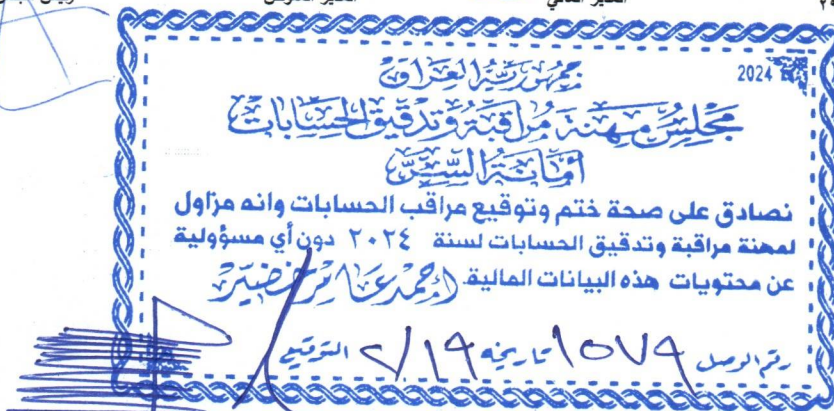 المدير المالي
2024
جمهورية العراق
مجلس مهنة مراقبة وتدقيق الحسابات
أمانة السر
نصادق على صحة ختم وتوقيع مراقب الحسابات وانه مزاول
لمهنة مراقبة وتدقيق الحسابات لسنة ٢٠٢٤ دون أي مسؤولية
عن محتويات هذه البيانات المالية. احمد عامر خضير
رقم الوصل ١٥٧٩ تاريخه ٢/١٩ التوقيع